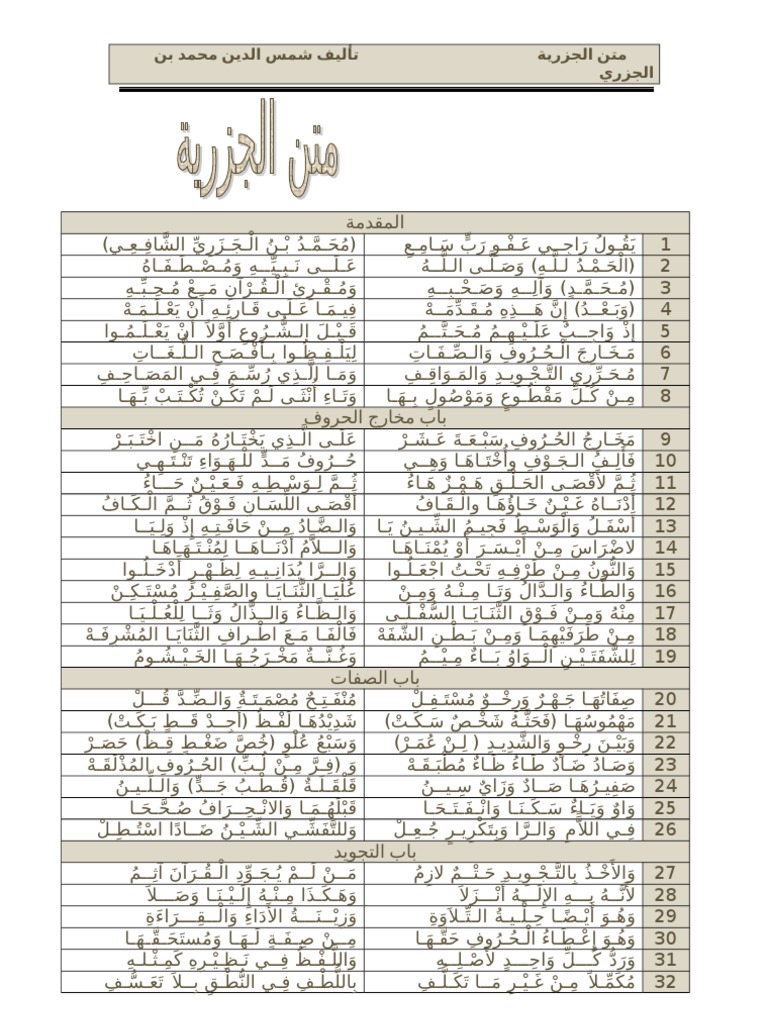 متن الجزرية تأليف شمس الدين محمد بن
الجزري
متن الجزرية
المقدمة
1 يَقُولُ رَاجِي عَفْوِ رَبٍّ سَامِعِ (مُحَمَّدُ بْنُ الْجَزَرِيِّ الشَّافِعِي)
2 (الْحَمْدُ لِلَّهِ) وَصَلَّى اللَّهُ عَلَى نَبِيِّهِ وَمُصْطَفَاهُ
3 (مُحَمَّدٍ) وَآلِهِ وَصَحْبِهِ وَمُقْرِئِ الْقُرْآنِ مَعْ مُحِبِّهِ
4 (وَبَعْدُ) إِنَّ هَذِهِ مُقَدِّمَهْ فِيمَا عَلَى قَارِئِهِ أَنْ يَعْلَمَهْ
5 إِذْ وَاجِبٌ عَلَيْهِمُ مُحَتَّمُ قَبْلَ الشُّرُوعِ أَوَّلاً أَنْ يَعْلَمُوا
6 مَخَارِجَ الْحُرُوفِ وَالصِّفَاتِ لِيَلْفِظُوا بِأَفْصَحِ اللُّغَاتِ
7 مُحَرِّرِي التَّجْوِيدِ وَالمَوَاقِفِ وَمَا الَّذِي رُسِّمَ فِي المَصَاحِفِ
8 مِنْ كُلِّ مَقْطُوعٍ وَمَوْصُولٍ بِهَا وَتَاءِ أُنْثَى لَمْ تَكُنْ تُكْتَبْ بِّهَا
باب مخارج الحروف
9 مَخَارِجُ الحُرُوفِ سَبْعَةَ عَشَرْ عَلَى الَّذِي يَخْتَارُهُ مَنِ اخْتَبَرْ
10 فَأَلِفُ الجَوْفِ وأُخْتَاهَا وَهِي حُرُوفُ مَدٍّ للْهَوَاءِ تَنْتَهِي
11 ثُمَّ لأَقْصَى الحَلْقِ هَمْزٌ هَاءُ ثُمَّ لِوَسْطِهِ فَعَيْنٌ حَاءُ
12 أَدْنَاهُ غَيْنٌ خَاؤُهَا والْقَافُ أَقْصَى اللِّسَانِ فَوْقُ ثُمَّ الْكَافُ
13 أَسْفَلُ وَالْوَسْطُ فَجِيمُ الشِّينُ يَا وَالضَّادُ مِنْ حَافَتِهِ إِذْ وَلِيَا
14 لاضْرَاسَ مِنْ أَيْسَرَ أَوْ يُمْنَاهَا وَاللاَّمُ أَدْنَاهَا لِمُنْتَهَاهَا
15 وَالنُّونُ مِنْ طَرْفِهِ تَحْتُ اجْعَلُوا وَالرَّا يُدَانِيهِ لِظَهْرٍ أَدْخَلُوا
16 وَالطَّاءُ وَالدَّالُ وَتَا مِنْهُ وَمِنْ عُلْيَا الثَّنَايَا والصَّفِيْرُ مُسْتَكِنْ
17 مِنْهُ وَمِنْ فَوْقِ الثَّنَايَا السُّفْلَى وَالظَّاءُ وَالذَّالُ وَثَا لِلْعُلْيَا
18 مِنْ طَرَفَيْهِمَا وَمِنْ بَطْنِ الشَّفَهْ فَالْفَا مَعَ اطْرافِ الثَّنَايَا المُشْرِفَهْ
19 لِلشَّفَتَيْنِ الْوَاوُ بَاءٌ مِيْمُ وَغُنَّةٌ مَخْرَجُهَا الخَيْشُومُ
باب الصفات
20 صِفَاتُهَا جَهْرٌ وَرِخْوٌ مُسْتَفِلْ مُنْفَتِحٌ مُصْمَتَةٌ وَالضِّدَّ قُلْ
21 مَهْمُوسُهَا (فَحَثَّهُ شَخْصٌ سَكَتْ) شَدِيْدُهَا لَفْظُ (أَجِدْ قَطٍ بَكَتْ)
22 وَبَيْنَ رِخْوٍ وَالشَّدِيدِ ( لِنْ عُمَرْ) وَسَبْعُ عُلْوٍ (خُصَّ ضَغْطٍ قِظْ) حَصَرْ
23 وَصَادُ ضَادٌ طَاءُ ظَاءٌ مُطْبَقَهْ وَ (فِرَّ مِنْ لُبِّ) الحُرُوفِ المُذْلَقَهْ
24 صَفِيرُهَا صَادٌ وَزَايٌ سِينُ قَلْقَلَةٌ (قُطْبُ جَدٍّ) وَاللِّينُ
25 وَاوٌ وَيَاءٌ سَكَنَا وَانْفَتَحَا قَبْلَهُمَا وَالانْحِرَافُ صُحَّحَا
26 فِي اللاَّمِ وَالرَّا وَبِتَكْرِيرٍ جُعِلْ وَللتَّفَشِّي الشِّيْنُ ضَادًا اسْتُطِلْ
باب التجويد
27 وَالأَخْذُ بِالتَّجْوِيدِ حَتْمٌ لازِمُ مَنْ لَمْ يُجَوِّدِ الْقُرَآنَ آثِمُ
28 لأَنَّهُ بِهِ الإِلَهُ أَنْزَلاَ وَهَكَذَا مِنْهُ إِلَيْنَا وَصَلاَ
29 وَهُوَ أَيْضًا حِلْيةُ التِّلاَوَةِ وَزِيْنَةُ الأَدَاءِ وَالْقِرَاءَةِ
30 وَهُوَ إِعْطَاءُ الْحُرُوفِ حَقَّهَا مِنْ صِفَةٍ لَهَا وَمُستَحَقَّهَا
31 وَرَدُّ كُلِّ وَاحِدٍ لأَصْلِهِ وَاللَّفْظُ فِي نَظِيْرِهِ كَمِثْلِهِ
32 مُكَمِّلاً مِنْ غَيْرِ مَا تَكَلُّفِ بِاللُّطْفِ فِي النُّطْقِ بِلاَ تَعَسُّفِ